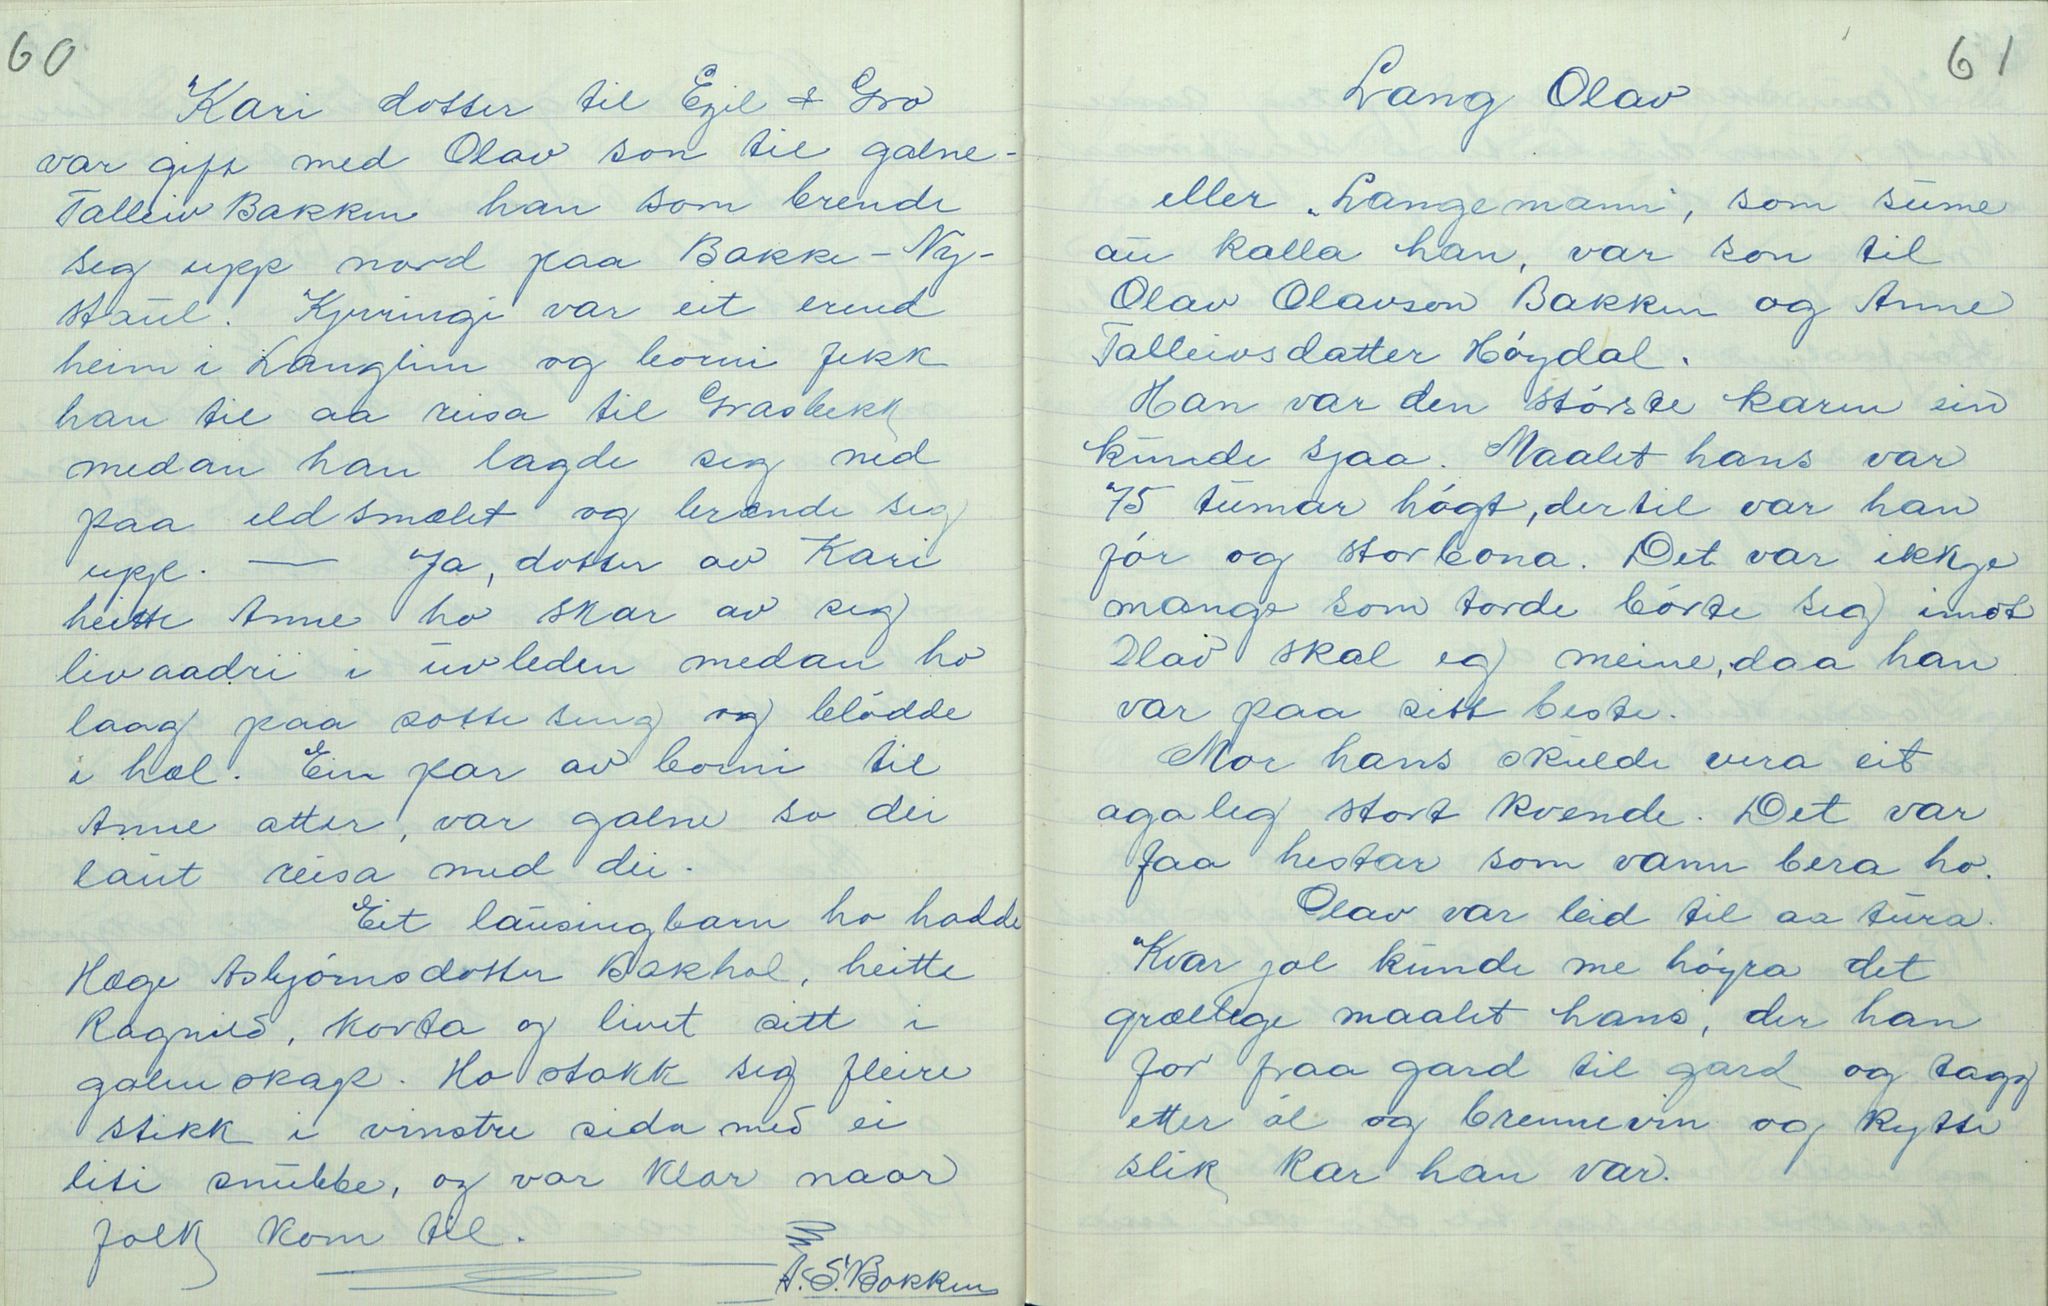 60
Kari dotter til Egil & Gro
var gift med Olav son til galne-
Talleiv Bakken han som brende
seg upp nord paa Bakke-Ny-
staul. Kjerringi var eit erend
heim i Langlim og borni fekk
han til aa reisa til Grasbekk
medan han lagde seg ned
paa eldsmælet og brænde seg
upp. — Ja, dotter av Kari
heitte Anne ho skar av seg
livaadri i uvleden medan ho
laag paa sotteseng og blødde
i hæl. Ein par av borni til
Anne atter, var galne so dei
laut reisa med dei.
Eit lausingbarn ho hadde
Hæge Asbjørnsdotter Bakhol, heitte
Ragnild, korta og livet sitt i
galenskap. Ho stakk seg fleire
stikk i vinstre sida med ei
liti snubbe, og var klar naar
folk kom til.
A. S. Bakken
61
Lang Olav
eller „Langemann", som sume
au kalla han, var son til
Olav Olavson Bakken og Anne
Talleivsdatter Høydal.
Han var den største karen ein
kunde sjaa. Maalet hans var
75 tumar høgt, dertil var han
før og storbona. Det var ikkje
mange som torde børte seg imot
Olav skal eg meine, daa han
var paa sitt beste.
Mor hans skulde vera eit
agaleg stort kvende. Det var
faa hestar som vann bera ho.
Olav var leid til aa tura.
Kvar jol kunde me høyra det
grættege maalet hans, der han
for fraa gard til gard og tagg
etter øl og brennevin og kytte
slik kar han var.